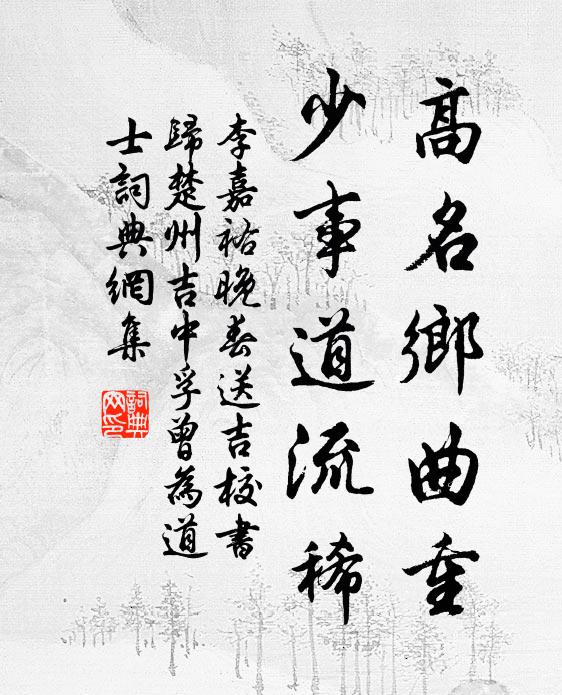 高名鄉曲重
少事道流稀
李嘉祐晚春送吉校書
歸楚州吉中孚曾為道
士詞典網集
詞典
网印